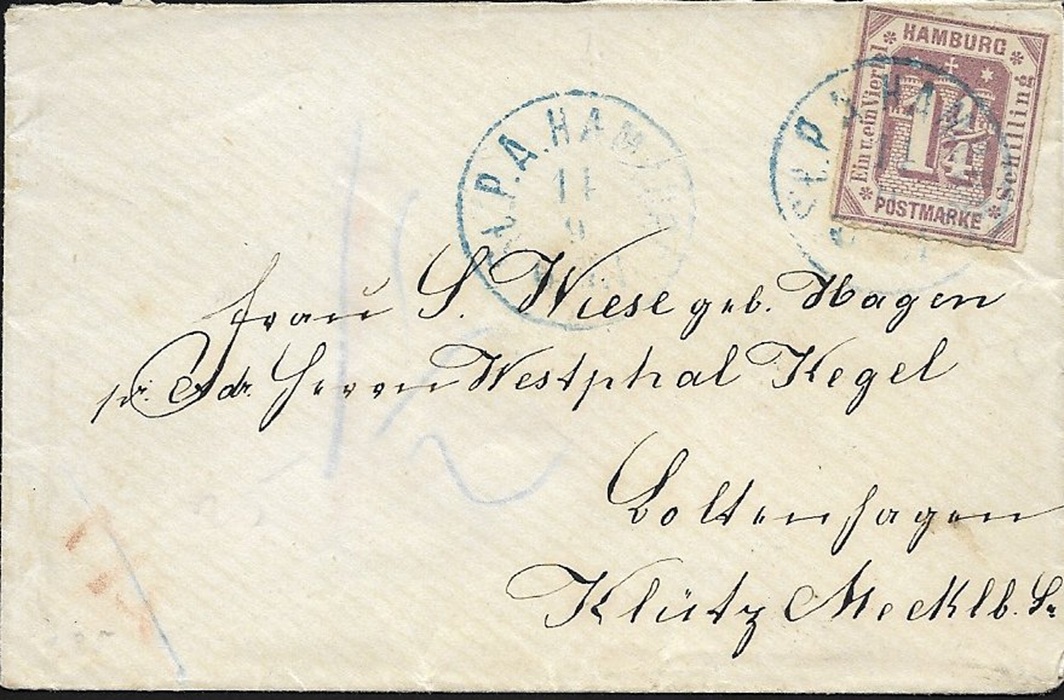 HAMBURG
Ein u. ein Viertel
1 1/4
Schilling
POSTMARKE
St. P. A. HAMBURG
11
9
St. P. A. HAM
Frau S. Wiese geb. Hagen
pr. Adr. Herrn Westphal Kegel
Boltenhagen
Klütz Mecklb.
1/2